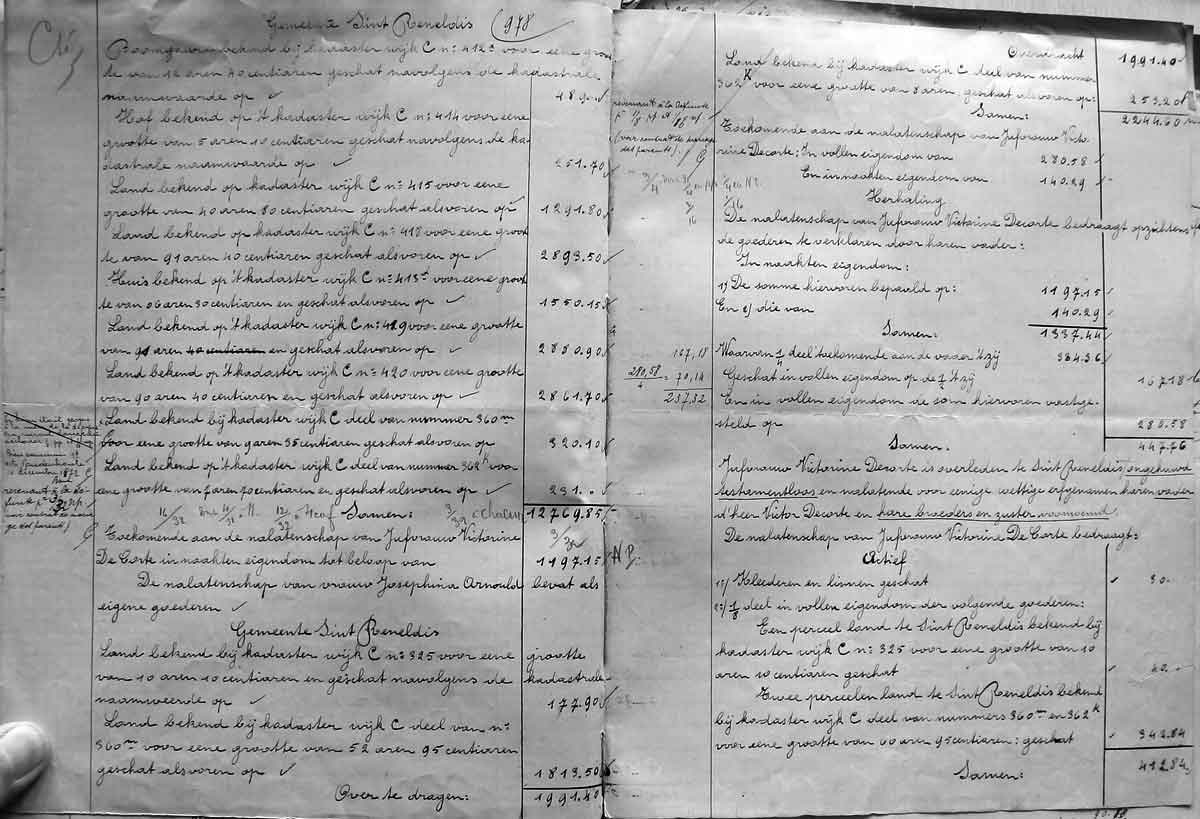 Gemeente Sint Reneldis (978
Boomgaard bekend bij kadaster wijk C nº 412ᵃ voor eene groot
te van 12 aren 40 centiaren geschat navolgens de kadastrale
naamwaarde op ✓ 489.
Hof bekend op 't kadaster wijk C nº 414 voor eene
grootte van 5 aren 10 centiaren geschat navolgens de ka
dastrale naamwaarde op ✓ 251.70
Land bekend op kadaster wijk C nº 415 voor eene
grootte van 40 aren 80 centiaren geschat alsvoren op 1291.80
Land bekend op kadaster wijk C nº 418 voor eene groot
te van 91 aren 40 centiaren geschat alsvoren op ✓ 2893.50
Huis bekend op 't kadaster wijk C nº 413ᵈ voor eene groot
te van 06 aren 30 centiaren en geschat alsvoren op ✓ 1550.15
Land bekend op 't kadaster wijk C nº 429 voor eene grootte
van 91 aren 40 centiaren en geschat alsvoren op ✓ 2880.90
Land bekend op 't kadaster wijk C nº 420 voor eene grootte
van 90 aren 40 centiaren en geschat alsvoren op ✓ 2861.70
Land bekend bij kadaster wijk C deel van nummer 360ᵐ
voor eene grootte van 9 aren 35 centiaren geschat alsvoren op 320.10
Land bekend op 't kadaster wijk C deel van nummer 362ᵏ voor
eene grootte van 7 aren 70 centiaren en geschat alsvoren op ✓ 231.
Samen: 12769.85
Toekomende aan de nalatenschap van Juforauw Victorine
De Corte in naakten eigendom tot beloop van 1197.15
De nalatenschap van vrouw Josephina Arnould bevat als
eigene goederen ✓
Gemeente Sint Reneldis
Land bekend bij kadaster wijk C nº 325 voor eene grootte
van 10 aren 10 centiaren en geschat navolgens de kadastrale
naamweerde op ✓ 177.90
Land bekend bij kadaster wijk C deel van nº
360ᵐ voor eene grootte van 52 aren 95 centiaren
geschat alsvoren op ✓ 1813.50
Over te dragen: 1991.40
Overdracht 1991.40
Land bekend bij kadaster wijk C deel van nummer
362ᴷ voor eene grootte van 8 aren, geschat alsvoren op: 253.20
Samen: 2244.60
Toekomende aan de nalatenschap van Juforauw Victo
rine Decorte: In vollen eigendom van 280.58
En in naakten eigendom van 140.29
Herhaling
De nalatenschap van Juforauw Victorine Decorte bedraagt opzichtens
de goederen te verklaren door haren vader:
In naakten eigendom:
1) De somme hiervoren bepaald op: 1197.15
En 2) die van 140.29
Samen: 1337.44
Waarvan 1/4 deel toekomende aan de vader 't zij 334.36
167,18
Geschat in vollen eigendom op de 1/2 't zij 167.18
280,58/4 = 70,14
237,32
En in vollen eigendom de som hiervoren vastge-
steld op 280.58
Samen. 447.76
Juforauw Victorine Decorte is overleden te Sint Reneldis, ongehuwd
testamentloos en nalatende voor eenige wettige erfgenamen haren vader
d'heer Victor Decorte en hare broeders en zuster voornoemd.
De nalatenschap van Juforauw Victorine De Corte bedraagt:
Actief
1º/ Kleederen en linnen geschat 30.
2º/ 1/8 deel in vollen eigendom der volgende goederen:
Een perceel land te Sint Reneldis bekend bij
kadaster wijk C nº 325 voor eene grootte van 10
aren 10 centiaren geschat 40.
Twee perceelen land te Sint Reneldis bekend
bij kadaster wijk C deel van nummers 360ᵐ en 362ᵏ
voor eene grootte van 60 aren 95 centiaren: geschat 342.84
Samen: 412.84